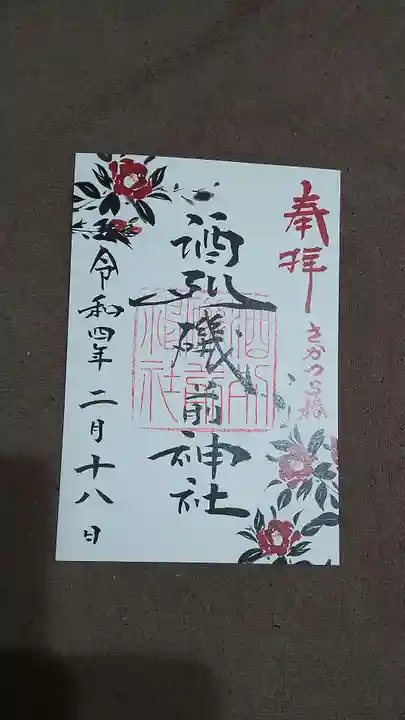 奉拝
さかつら椿
酒列磯前神社
令和四年二月十八日